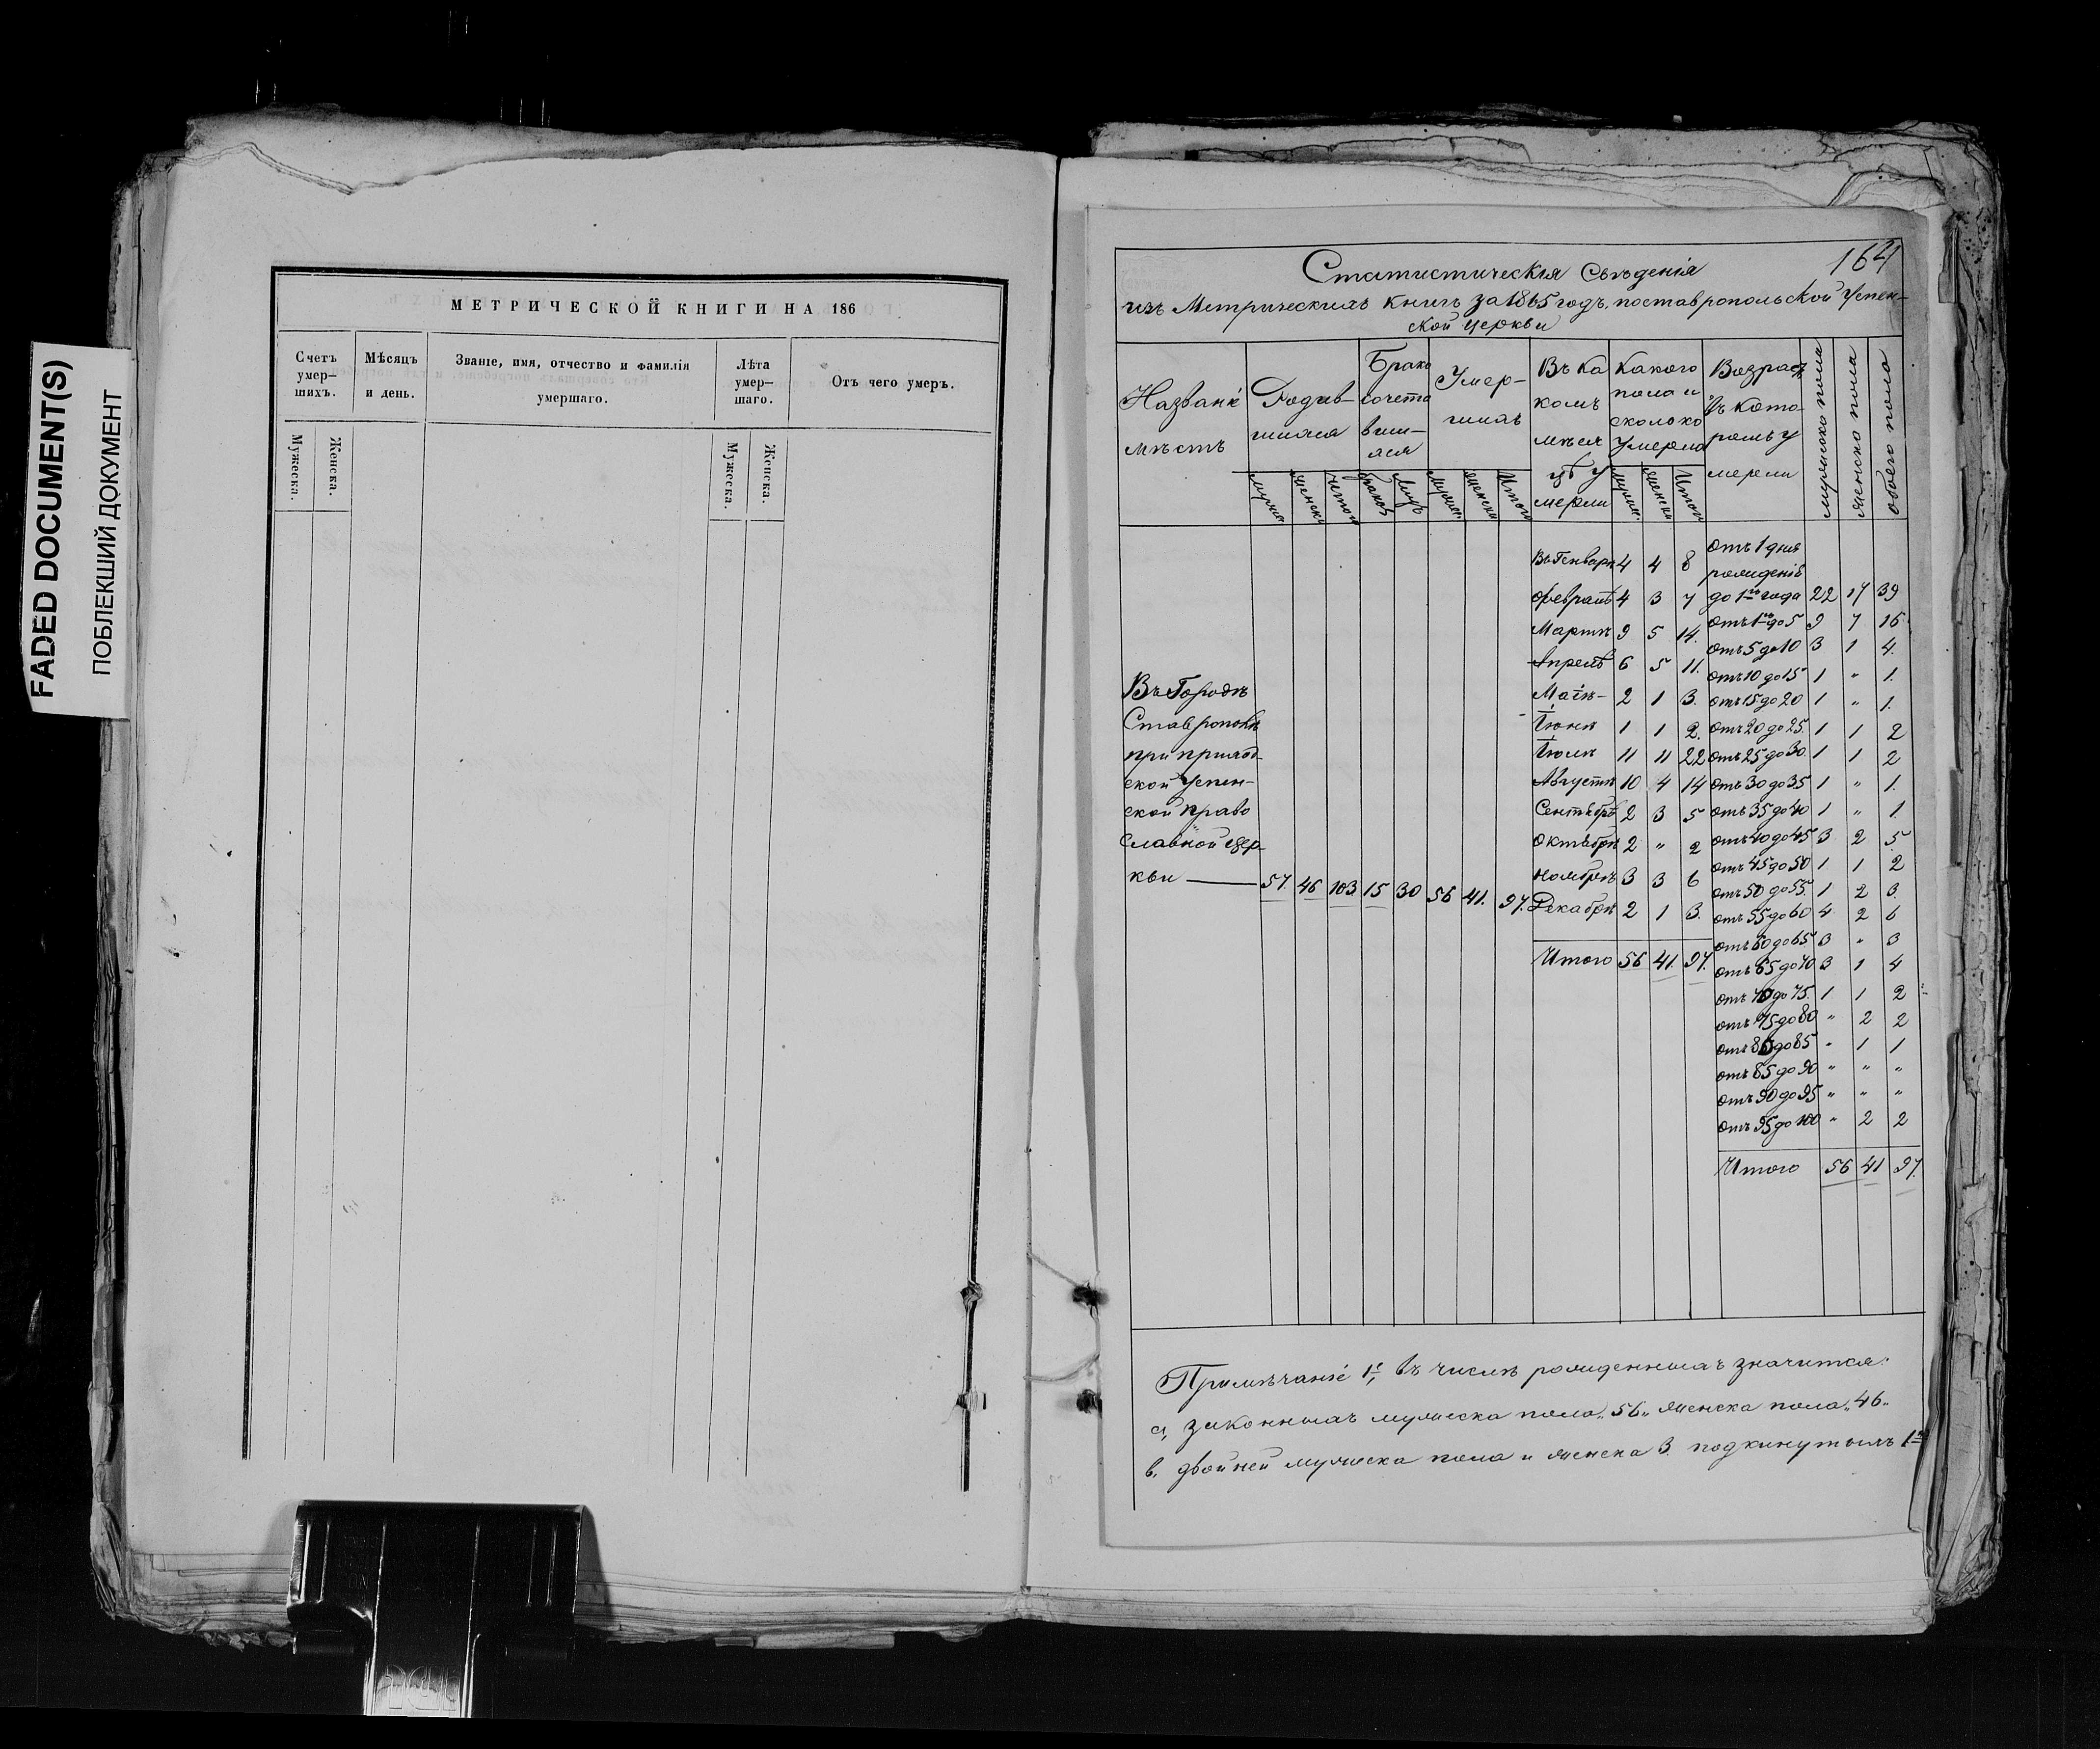 FADED DOCUMENT(S)
ПОБЛЕКШИЙ ДОКУМЕНТ
МЕТРИЧЕСКОЙ КНИГИ НА 186
Счетъ умер– шихъ.
Мѣсяцъ и день.
Званіе, имя, отчество и фамилія умершаго.
Лѣта умер– шаго.
Отъ чего умеръ.
Мужеска.
Женска.
Мужеска.
Женска.
164
Статистическія Свѣденія
изъ Метрическихъ книгъ за 1865 годъ, поставропольской Успен-
ской церкви
Названіе мѣстъ
Родив- шихся
Брако сочета вши- яся
Умер- шихъ
Въ ка комъ мѣся цѣ у мерли
Какого пола и сколоко умерло
Возрастъ въ кото- ромъ у мерли
мужеско пола
женско пола
обоего пола
Въ Генварѣ 4 4 8
Февралѣ 4 3 7
Мартѣ 9 5 14.
Апрелѣ 6 5 11.
Маіѣ- 2 1 3.
Іюнѣ 1 1 2.
Іюлѣ 11 11 22
Августѣ 10 4 14
Сентябрѣ 2 3 5
Октябрѣ 2 „ 2
Ноябрѣ 3 3 6
Декабрѣ 2 1 3.
Итого 56 41. 97.
отъ 1 дня
рожденія
до 1го года 22 17 39
отъ 1го до 5 9 7 16
отъ 5 до 10 3 1 4.
отъ 10 до 15 1 „ 1.
отъ 15 до 20 1 „ 1.
отъ 20 до 25. 1 1 2
отъ 25 до 30. 1 1 2
отъ 30 до 35 1 „ 1.
отъ 35 до 40 1 „ 1.
отъ 40 до 45 3 2 5
отъ 45 до 50 1 1 2
отъ 50 до 55. 1 2 3.
отъ 55 до 60 4 2 6
отъ 60 до 65 3 „ 3
отъ 65 до 70 3 1 4
отъ 70 до 75. 1 1 2
отъ 75 до 80 „ 2 2
отъ 80 до 85 „ 1 1
отъ 85 до 90 „ „ „
отъ 90 до 95 „ „ „
отъ 95 до 100 „ 2 2
Итого 56 41 97.
Въ Городѣ
Ставрополѣ
при приход-
ской Успен-
ской право
славной цер-
кви — 57. 46 103 15 30 56 41. 97.
Примѣчаніе 1е, въ числѣ рожденныхъ значится:
а, законныхъ мужеска пола „56„ женска пола „46„
в. двойней мужеска пола и женска 3 подкинутыхъ 1